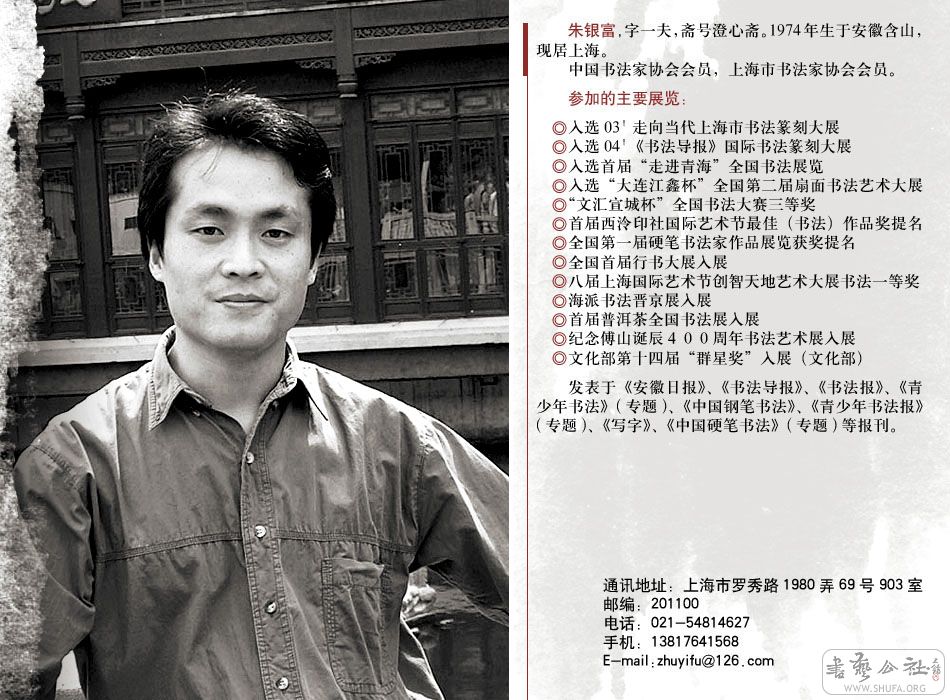 朱银富,字一夫,斋号澄心斋。1974年生于安徽含山,
现居上海。
中国书法家协会会员,上海市书法家协会会员。
参加的主要展览:
◎入选03'走向当代上海市书法篆刻大展
◎入选04'《书法导报》国际书法篆刻大展
◎入选首届“走进青海”全国书法展览
◎入选“大连江鑫杯”全国第二届扇面书法艺术大展
◎“文汇宣城杯”全国书法大赛三等奖
◎首届西泠印社国际艺术节最佳(书法)作品奖提名
◎全国第一届硬笔书法家作品展览获奖提名
◎全国首届行书大展入展
◎八届上海国际艺术节创智天地艺术大展书法一等奖
◎海派书法晋京展入展
◎首届普洱茶全国书法展入展
◎纪念傅山诞辰400周年书法艺术展入展
◎文化部第十四届“群星奖”入展(文化部)
发表于《安徽日报》、《书法导报》、《书法报》、《青
少年书法》(专题)、《中国钢笔书法》、《青少年书法报》
(专题)、《写字》、《中国硬笔书法》(专题)等报刊。
通讯地址:上海市罗秀路1980弄69号903室
邮编:201100
电话:021-54814627
手机:13817641568
E-mail:zhuyifu@126.com
書藝公社
WWW.SHUFA.ORG